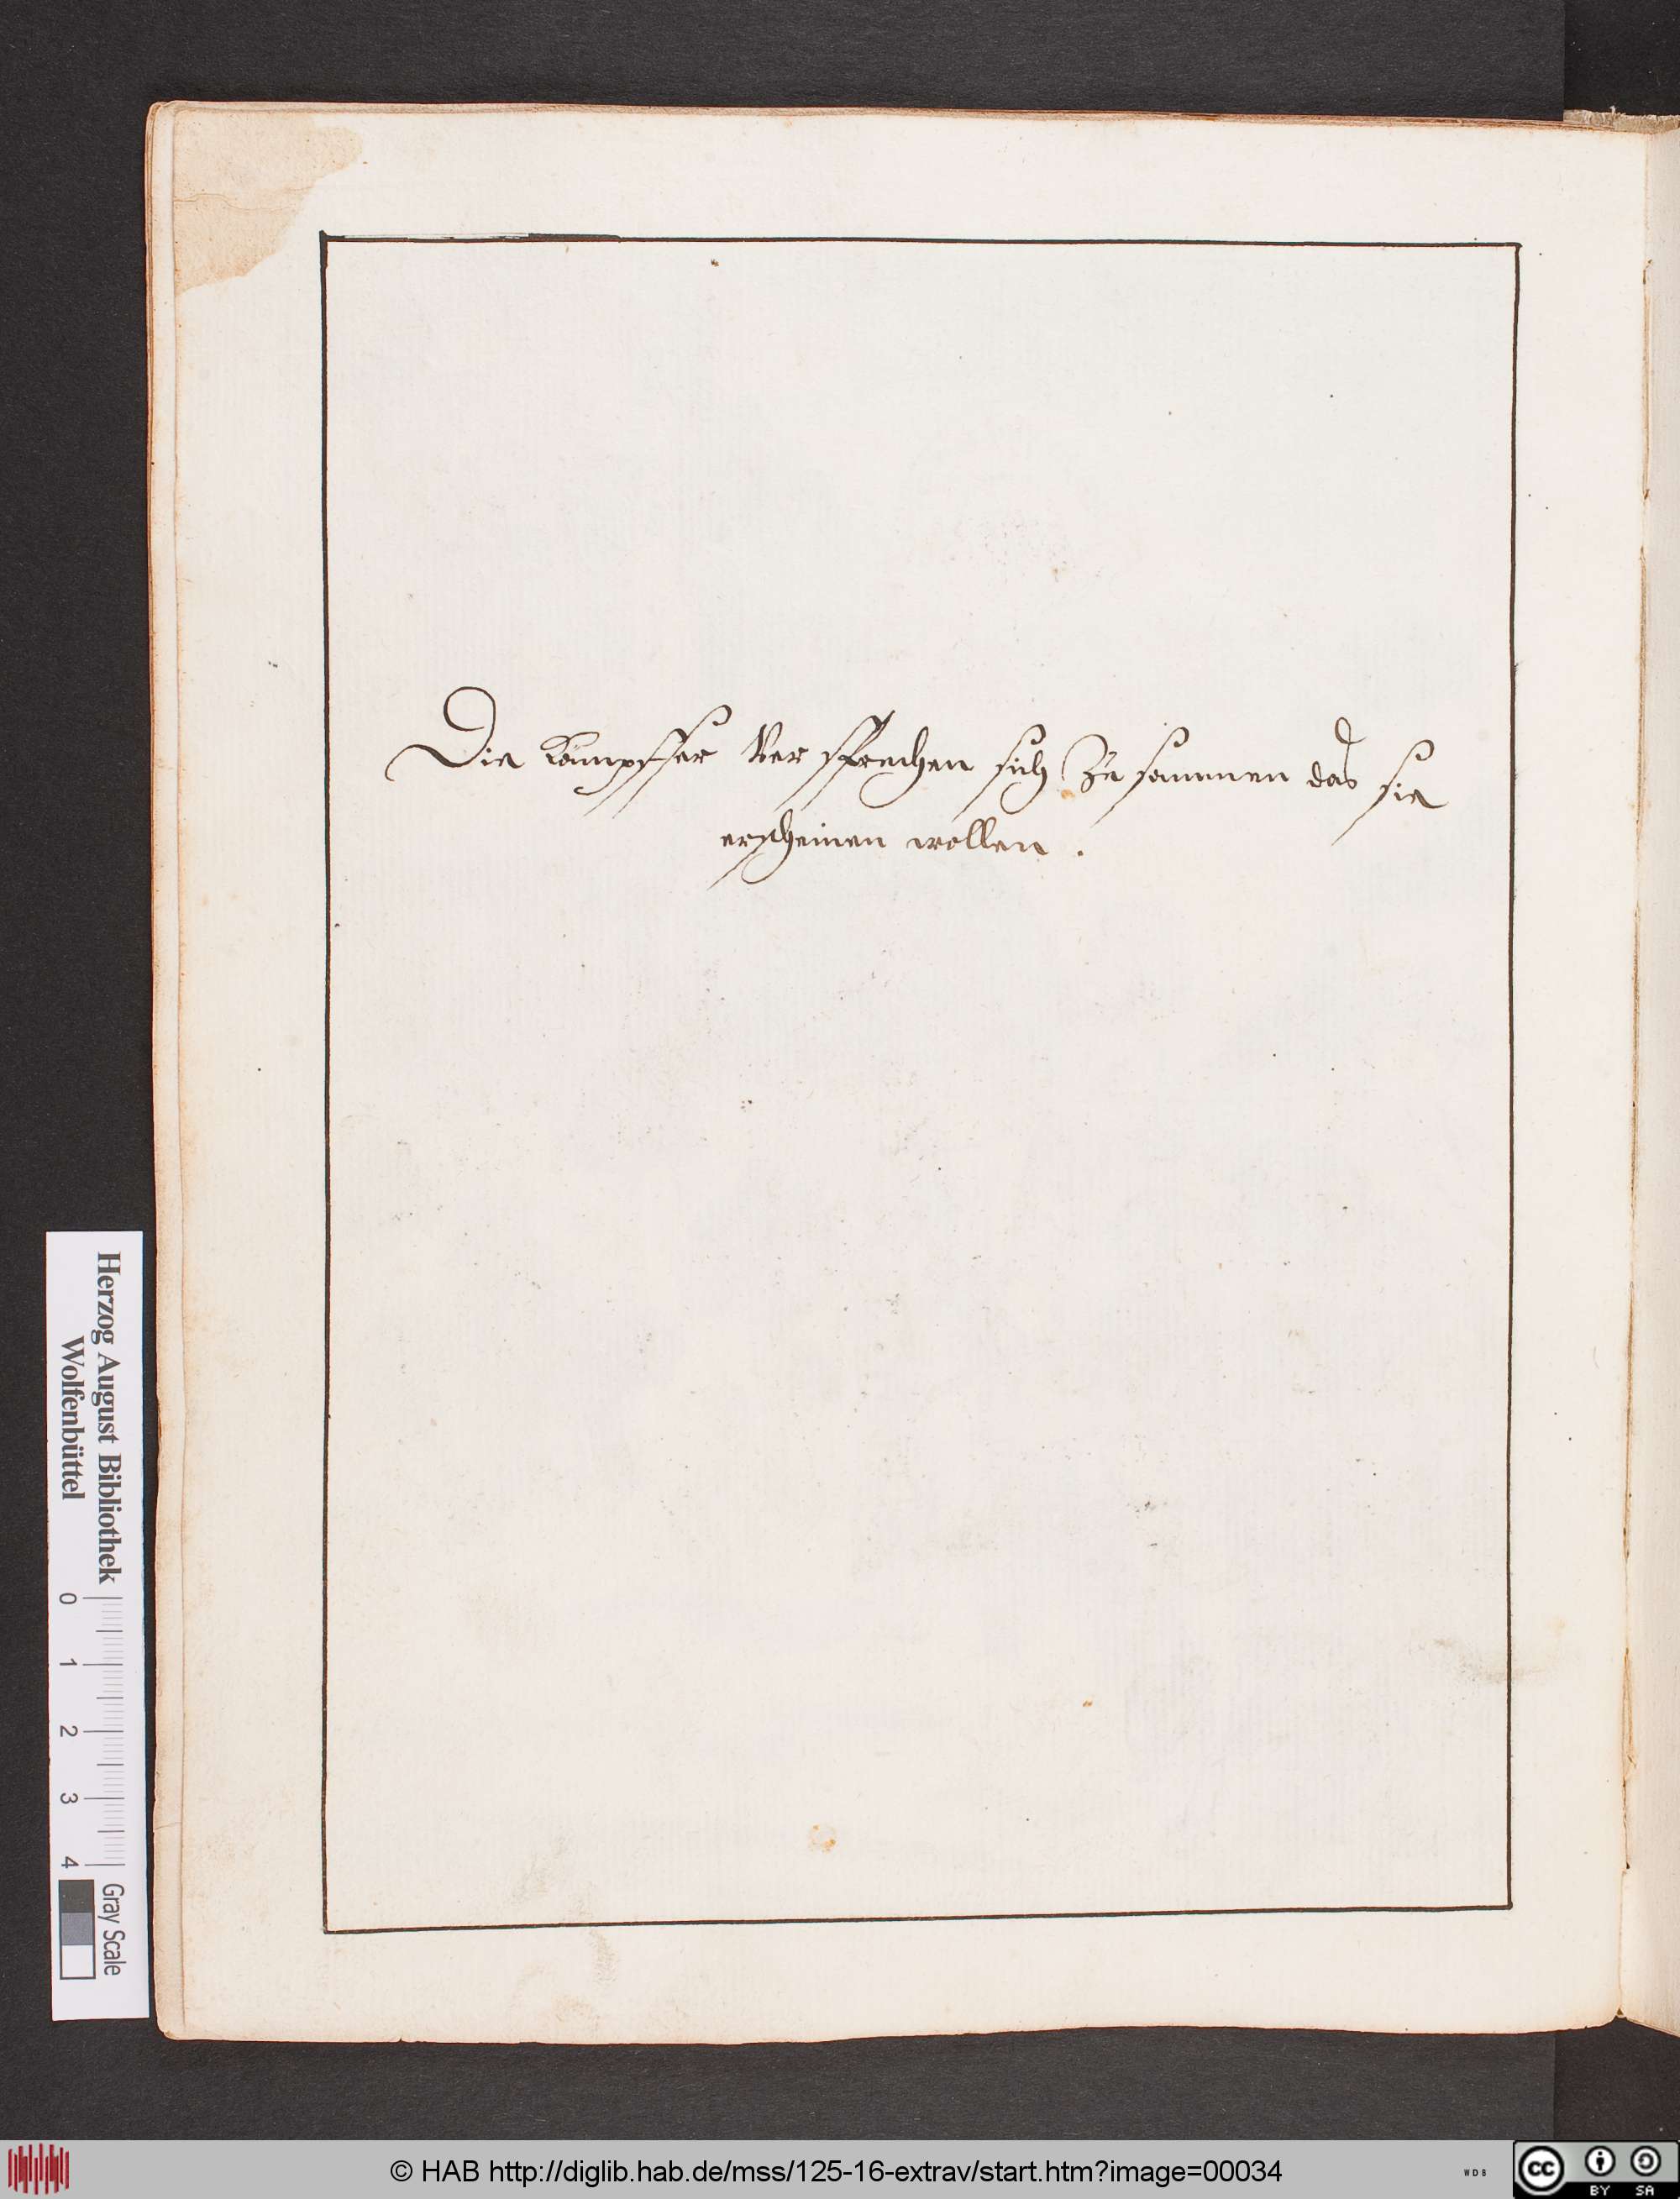 Die kämpffer Ver sprechen sich Zu sammen das sie
erscheinen wollen .
Herzog August Bibliothek
Wolfenbüttel
0 1 2 3 4
Gray Scale
© HAB http://diglib.hab.de/mss/125-16-extrav/start.htm?image=00034
WDB
cc BY SA